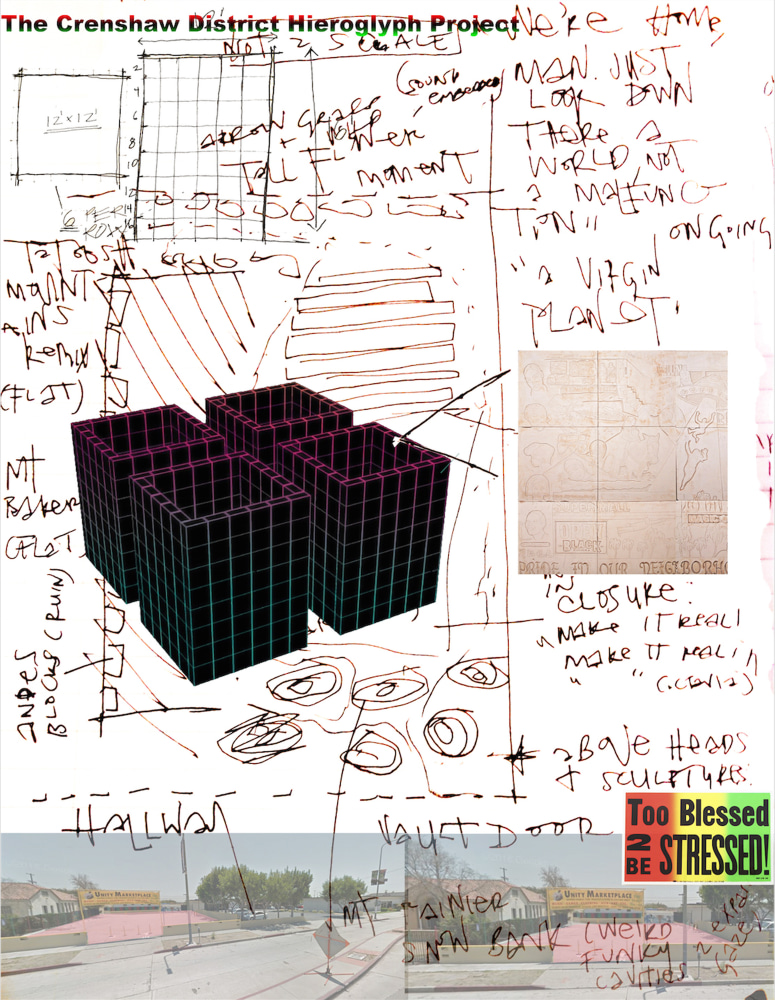 The Crenshaw District Hieroglyph Project
NOT 2 SCALE
12'x12'
2
4
6
8
10
12
14
16
6 PER
ROW
(SOUND
EMBEDDED
ARROW GRASS
+ FLOWER
TALL MOMENT
WE'RE HOME,
MAN. JUST
LOOK DOWN
THERE A
WORLD, NOT
A MALFUNC
TION"
ONGOING
"A VIRGIN
PLANET"
MOUNT
AINS
REMIX
(FLAT)
MT
BAKER
(FLAT)
INDEX
BLOCKS (RUIN)
BLACK
PRIDE IN OUR NEIGHBORHO
IN
CLOSURE:
"MAKE IT REAL!
MAKE IT REAL!"
ABOVE HEADS
+ SCULPTURES.
HALLWAY
VAULT DOOR
Too Blessed
2
BE STRESSED!
UNITY MARKETPLACE
UNITY MARKETPLACE
MT RAINIER
SNOW BANK (WEIRD
FUNKY
CAVITIES